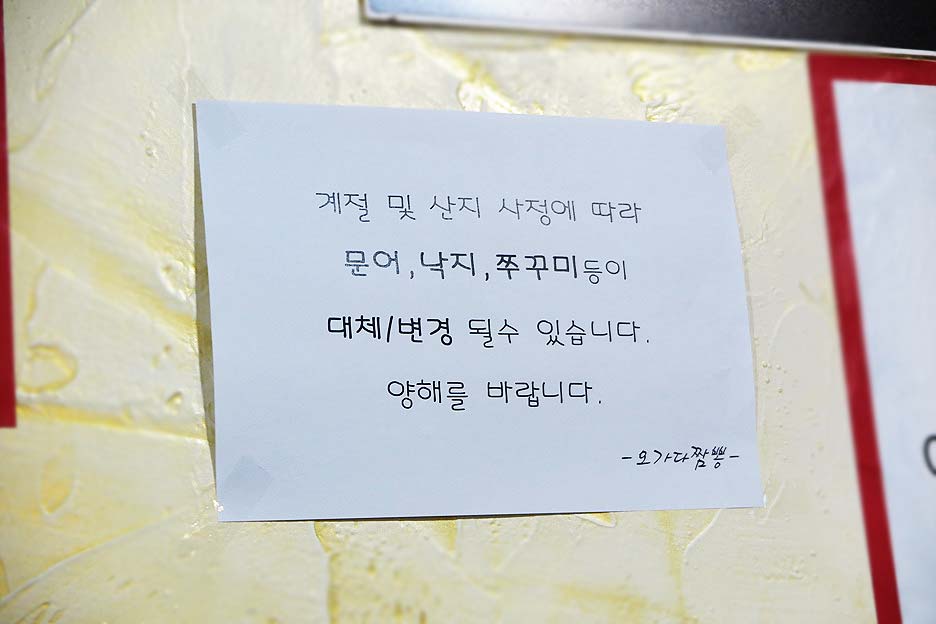 계절 및 산지 사정에 따라
문어,낙지,쭈꾸미등이
대체/변경 될수 있습니다.
양해를 바랍니다.
-오가다짬뽕-